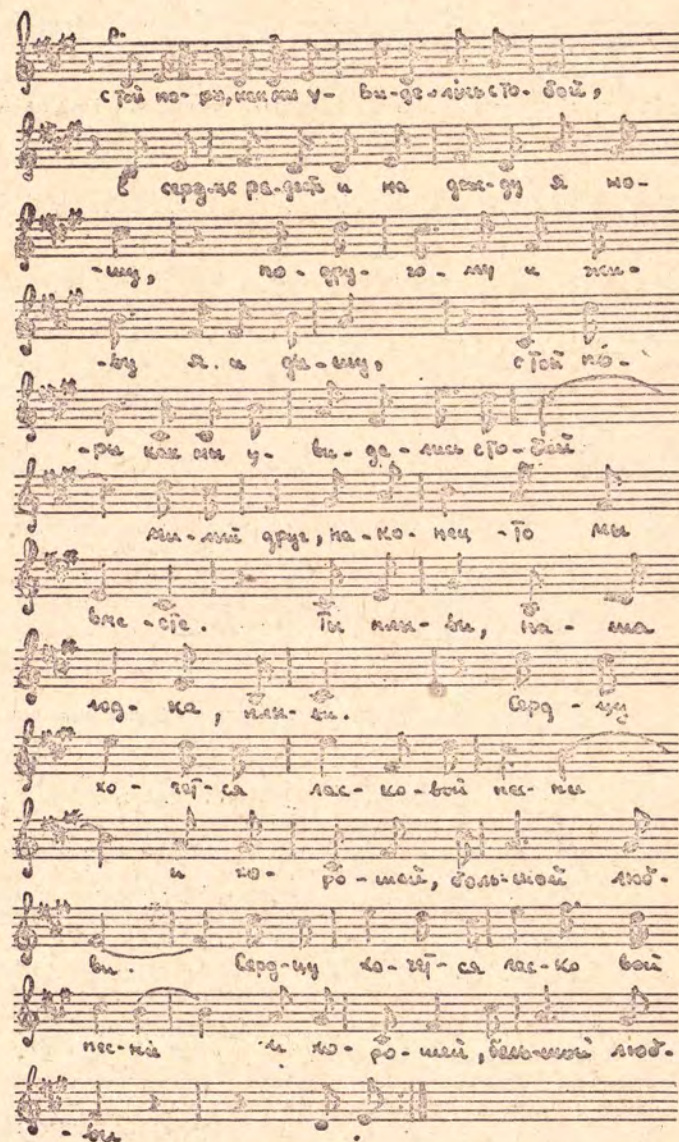 с той по-ры, как мы у- ви-де-лись с то-бой,
в серд-це ра-дость и на деж-ду я но-
-шу, по-дру-го-му и жи-
-ву я и ды-шу, с той по-
-ры как мы у- ви-де-лись с то-бой
ми-лый друг, на-ко-нец-то мы
вме-сте. Ты плы-ви, на-ша
лод-ка, плы-ви. Серд-цу
хо-чет-ся лас-ко-вой пес-ни
и хо-ро-шей, боль-шой люб-
ви. Серд-цу хо-чет-ся лас-ко вой
пес-ни и хо-ро-шей, боль-шой люб-
-ви